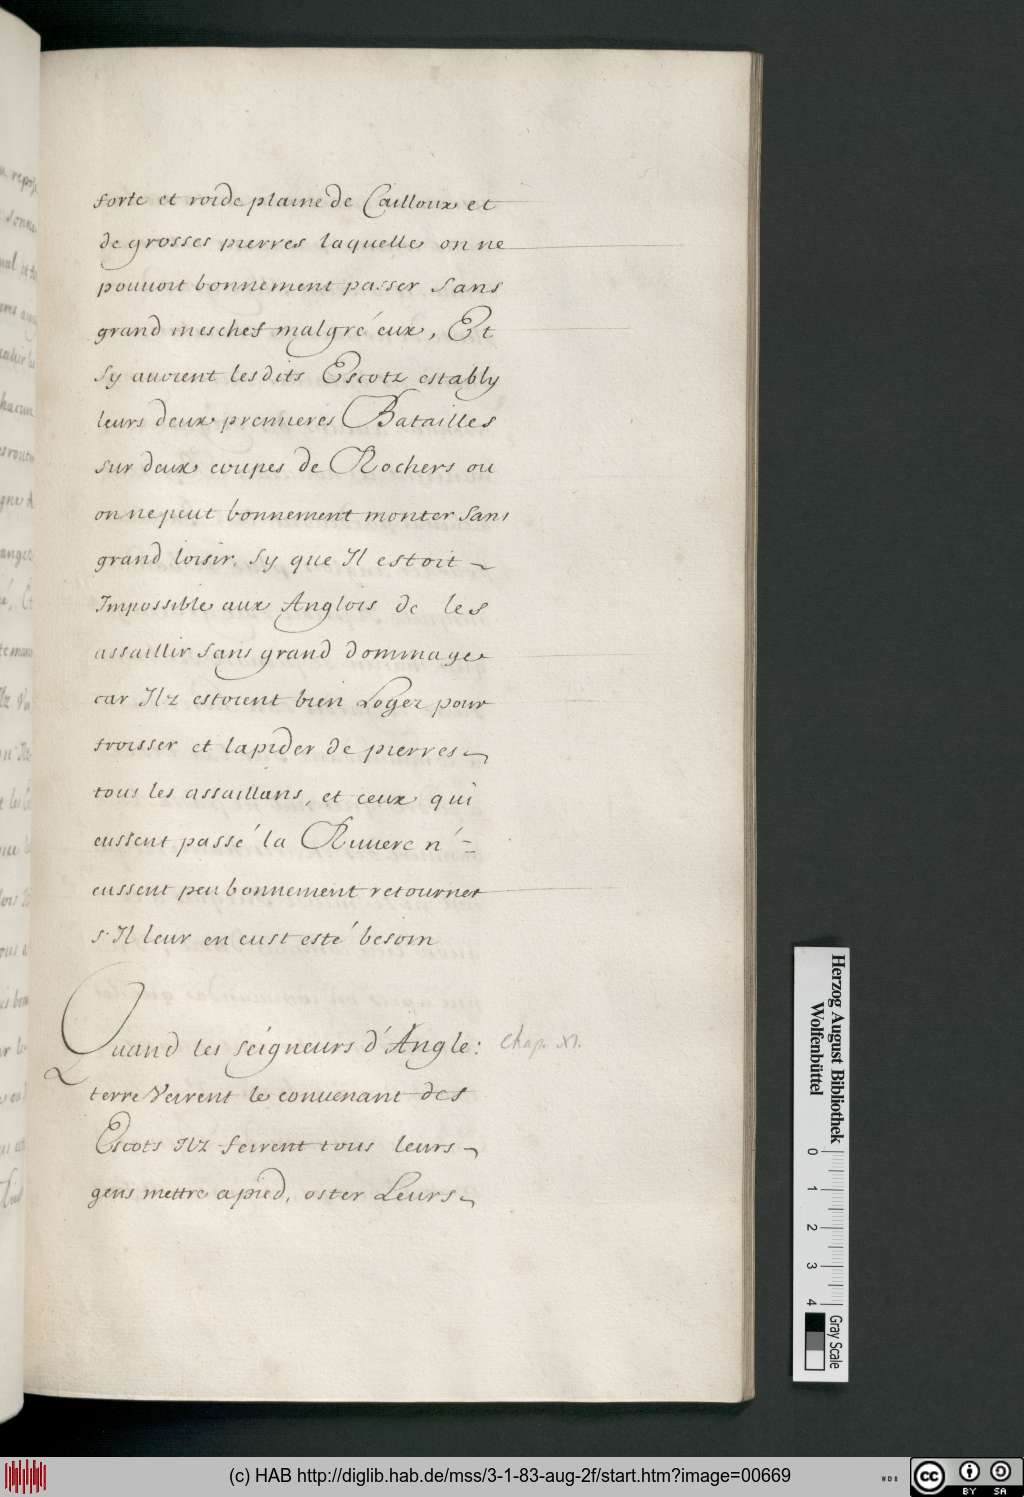 forte et roide plaine de Cailloux et
de grosses pierres laquelle on ne
pouuoit bonnement passer sans
grand meschef malgré eux, Et
sy auoient lesdits Escotz estably
leurs deux premieres Batailles
sur deux coupes de Rochers ou
on ne peut bonnement monter sans
grand loisir. sy que Il estoit
Impossible aux Anglois de les
assaillir sans grand dommage
car Ilz estoient bien Logez pour
froisser et lapider de pierres
tous les assaillans, et ceux qui
eussent passé la Riuiere n'=
eussent peu bonnement retourner
s'Il leur en eust esté besoin
Quand les seigneurs d'Angle: Chap. XI.
terre Veirent le conuenant des
Escots Ilz feirent tous leurs
gens mettre a pied, oster Leurs
Herzog August Bibliothek
Wolfenbüttel
0 1 2 3 4
Gray Scale
(c) HAB http://diglib.hab.de/mss/3-1-83-aug-2f/start.htm?image=00669
cc BY SA